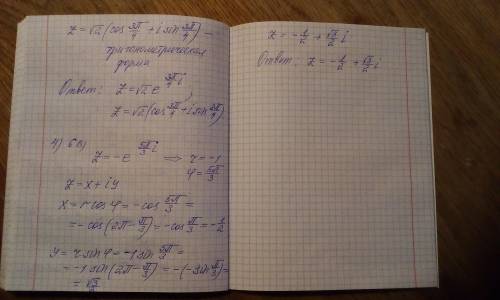 z = √2 (cos 3π/4 + i sin 3π/4) —
тригонометрическая
форма
Ответ: z = √2 e^(3π/4 i)
z = √2 (cos 3π/4 + i sin 3π/4)
4) 6 в)
z = -e^(5π/3 i) ⟹ r = -1
φ = 5π/3
z = x + iy
x = r cos φ = -cos 5π/3 =
= -cos(2π - π/3) = -cos π/3 = -1/2
y = r sin φ = -1 sin 5π/3 =
= -1 sin(2π - π/3) = -(-sin π/3) =
= √3/2
z = -1/2 + √3/2 i
Ответ: z = -1/2 + √3/2 i